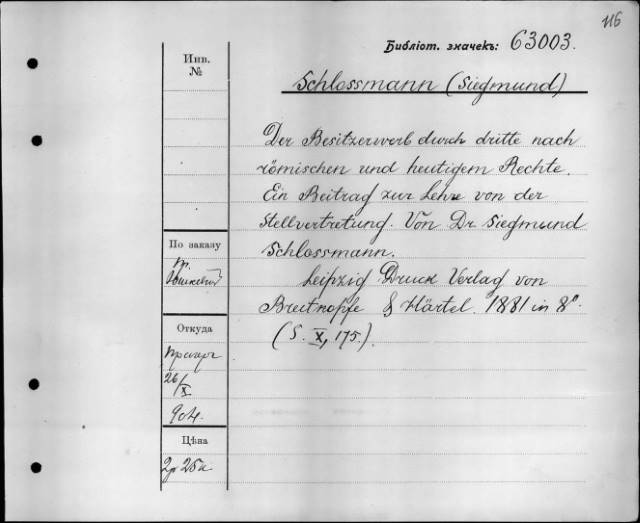 116
Библіот. значекъ: 63003.
Инв.
№
Schlossmann (Siegmund)
Der Besitzerwerb durch dritte nach
römischen und heutigem Rechte.
Ein Beitrag zur Lehre von der
Stellvertretung. Von Dr Siegmund
Schlossmann.
Leipzig Druck Verlag von
Breitkopfe & Härtel. 1881 in 8°.
(S. X, 175.).
По заказу
пр.
Откуда
26/X
Цѣна
2р 25к